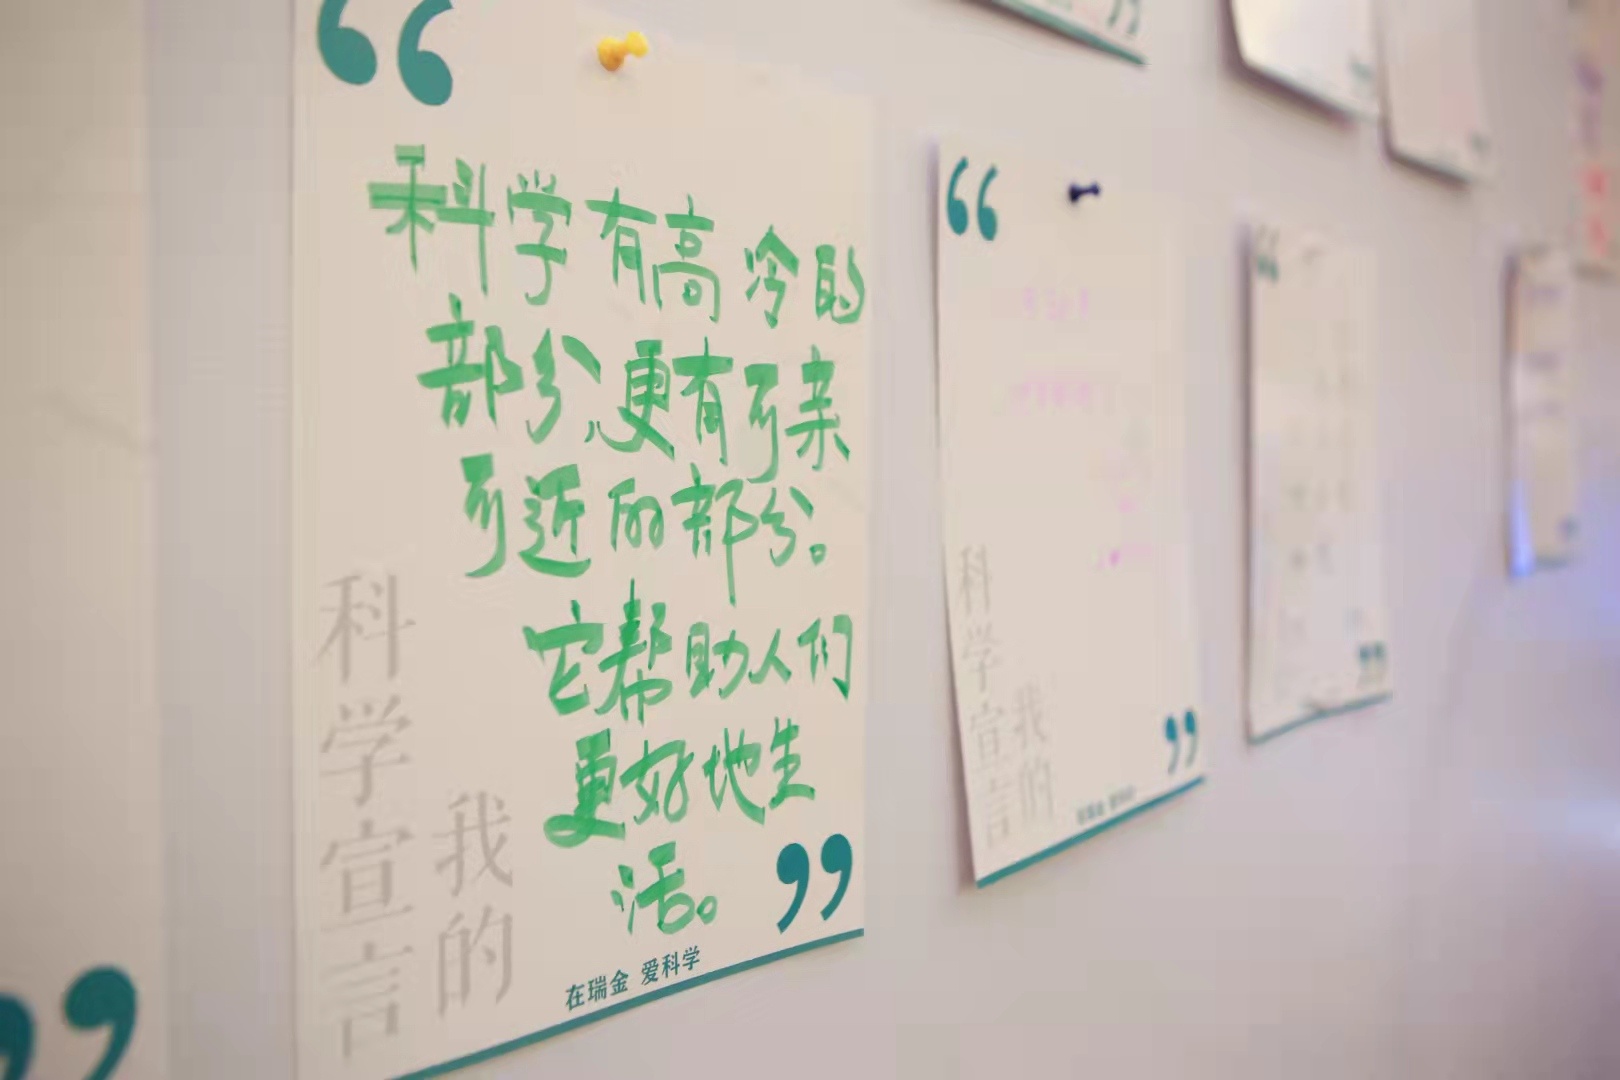 科学有高冷的
部分,更有可亲
可近的部分。
它帮助人们
更好地生
活。
我的
科学宣言
在瑞金 爱科学
我的
科学宣言